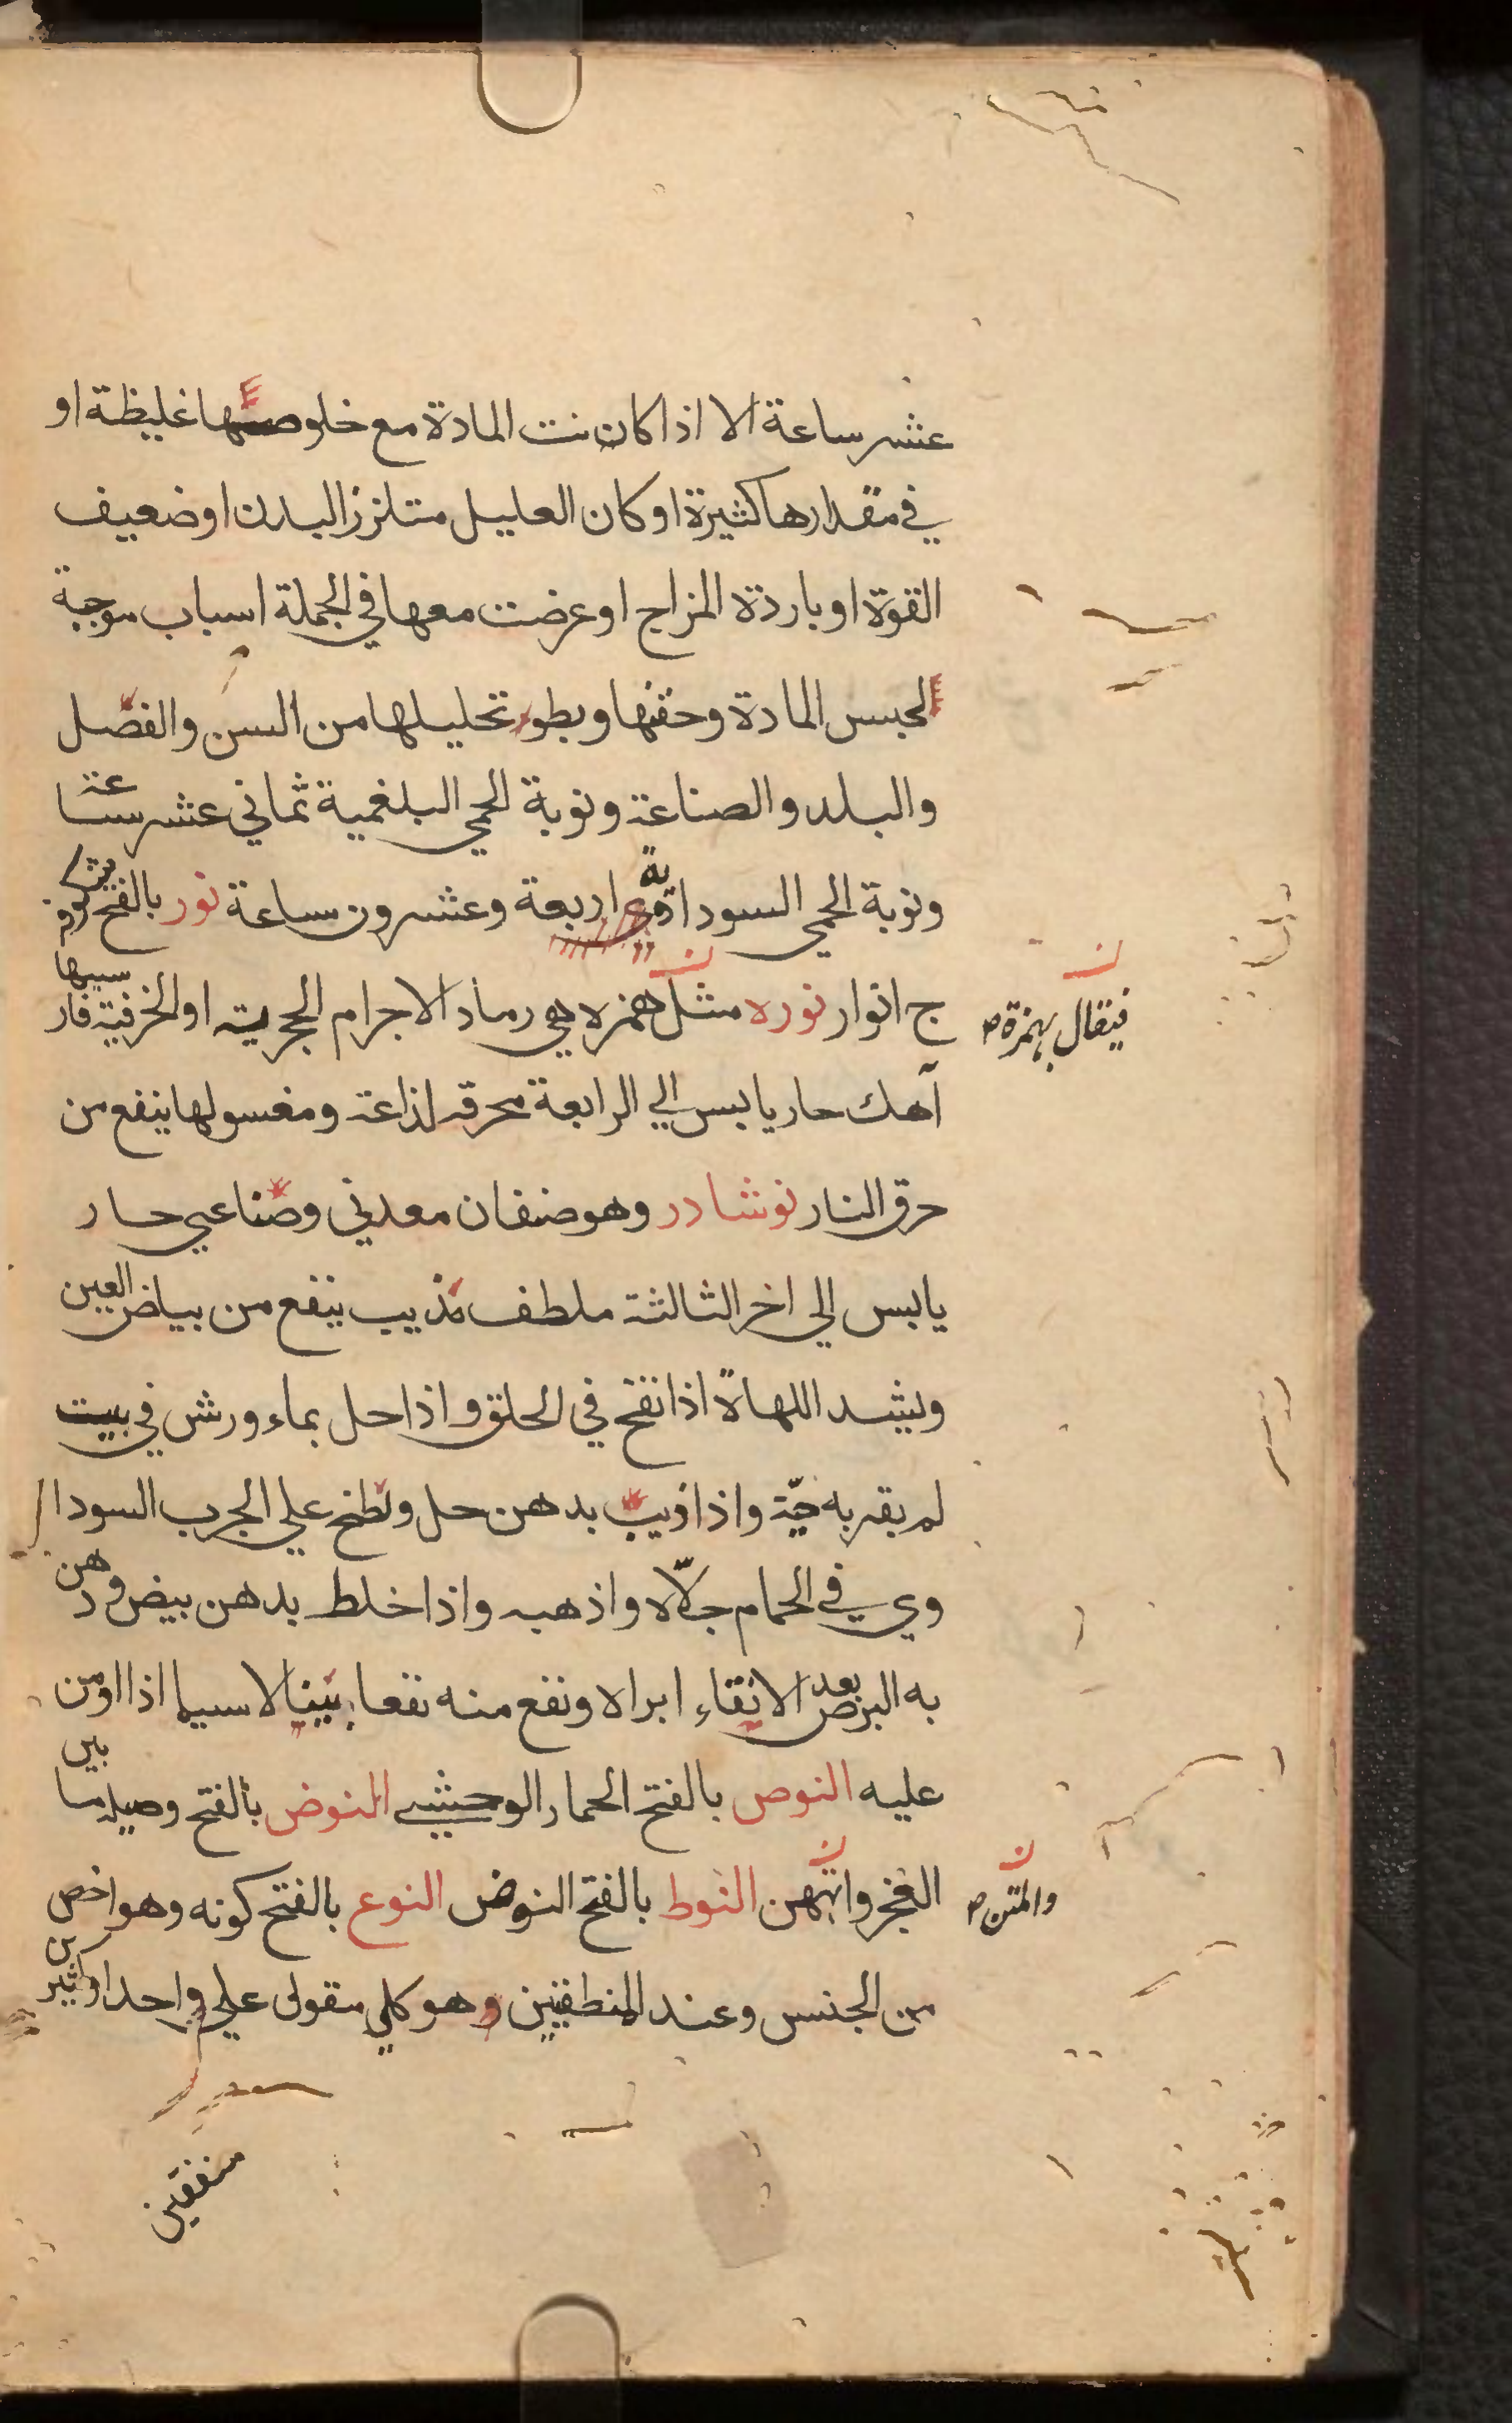 عشر ساعة الا اذا كان نت المادة مع خلوصها غليظة او
في مقدارها كثيرة او كان العليل متلزز البدن او ضعيف
القوة او باردة المزاج او عرضت معها في الجملة اسباب موجبة
لحبس المادة وحقنها وبطوء تحليلها من السن والفصل
والبلد والصناعة ونوبة الحمي البلغمية ثماني عشر ساعة
ونوبة الحمي السوداوية اربعة وعشرون ساعة نور بالفتح شكوفه
ج انوار نوره مثل همزه هي رماد الاجرام الحجرية او الخرفية فارسيها
فيقال بهمزة ص
آهك حار يابس الي الرابعة محرقة لذاعة ومغسولها ينفع من
حرق النار نوشادر وهو صنفان معدني وصناعي حار
يابس الي اخر الثالثة ملطف مذيب ينفع من بياض العين
ويشد اللهاة اذا نفخ في الحلق واذا حل بماء ورش في بيت
لم يقربه حية واذا اذيب بدهن حل ولطخ علي الجرب السودا
وي في الحمام جلاه واذهبه واذا خلط بدهن بيض ودهن
به البرص بعد الانقاء ابراه ونفع منه نفعا بينا لا سيما اذا اومن
عليه النوص بالفتح الحمار الوحشي النوض بالفتح وصيله ما بين
العجز والمتن النوط بالفتح النوض النوع بالفتح كونه وهو اخص
والمتن ص
من الجنس وعند المنطقيين وهو كلي مقول علي واحد او كثيرين
متفقين